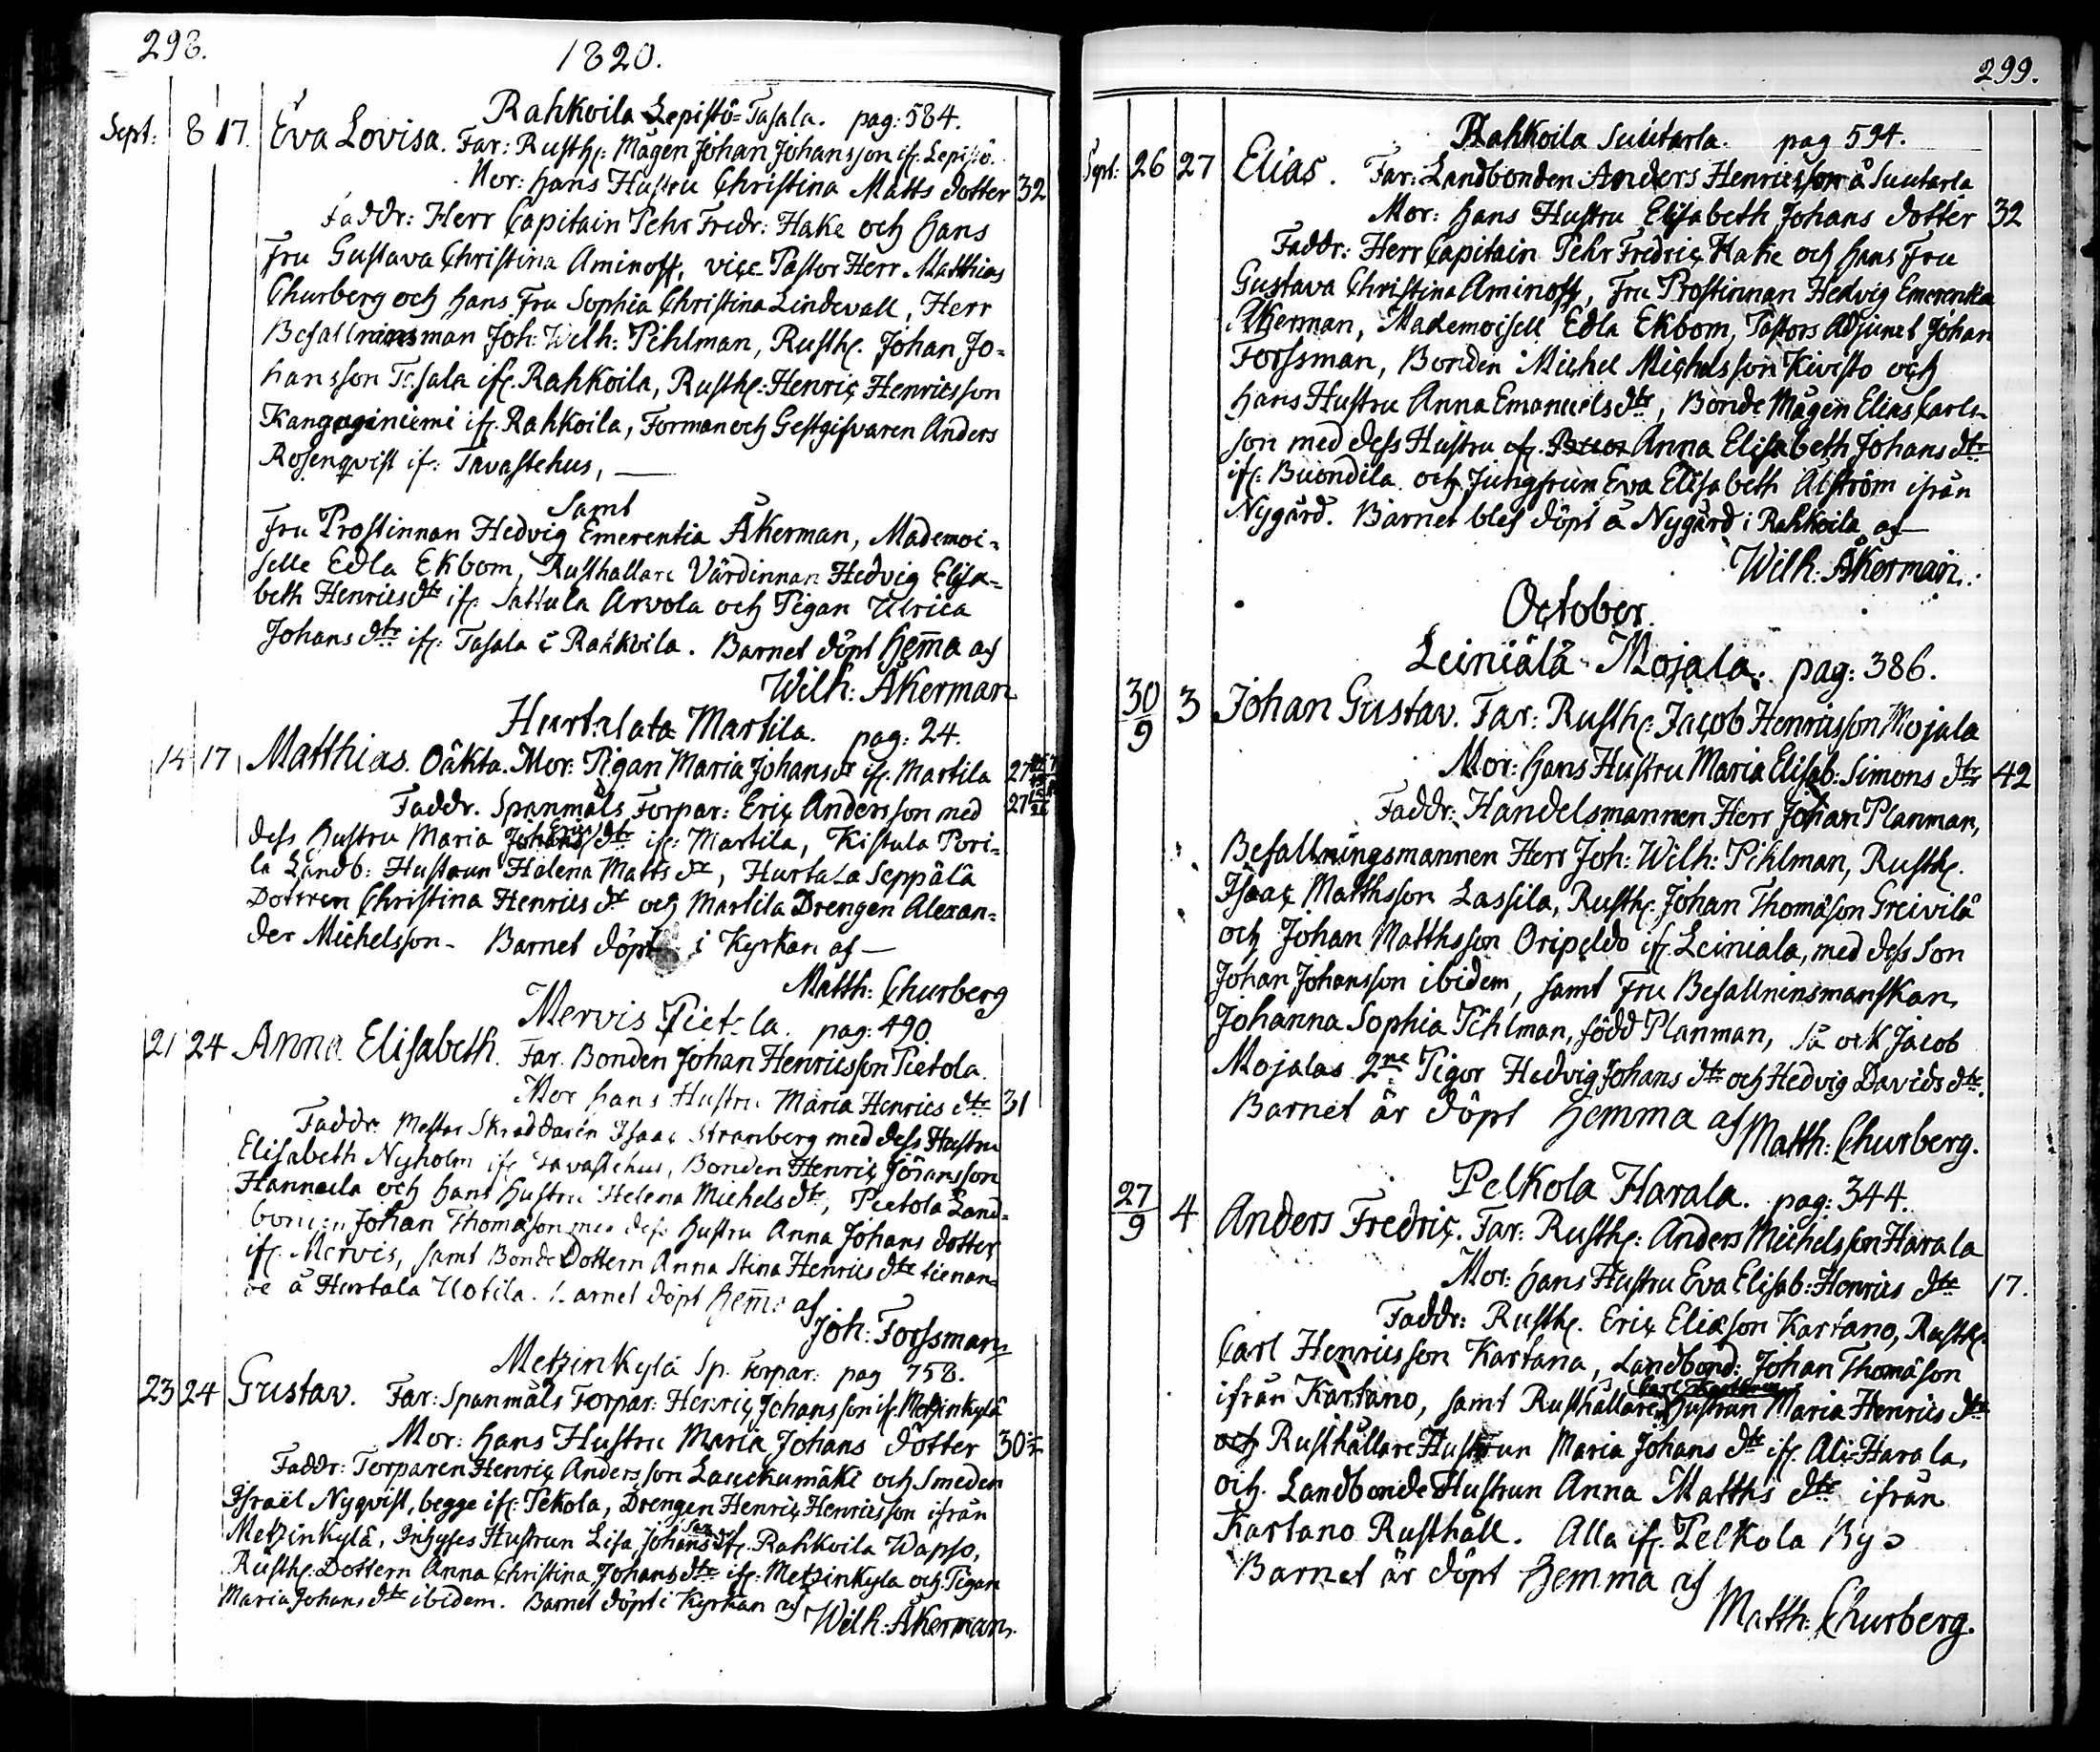 298.
1820.
Rahkoila Lepistö-Tasala. pag: 584.
Sept: 8 17. Eva Lovisa. Far: Rusth: Mågen Johan Johansson if: Lepistö.
Mor: hans Hustru Christina Matts dotter 32
Faddr: Herr Capitain Pehr Fredr: Hake och hans
Fru Gustava Christina Aminoff, vice Pastor Herr Matthias
Churberg och hans Fru Sophia Christina Lindevall, Herr
Befallninsman Joh: Wilh: Pihlman, Rusth. Johan Jo-
hansson Tasala if. Rahkoila, Rusth: Henric Henricsson
if. Rahkoila, Forman och Gestgifvaren Anders
Rosenqvist if: Tavastehus, —
Samt
Fru Prostinnan Hedvig Emerentia Åkerman, Mademoi-
selle Edla Ekbom, Rusthållare Värdinnan Hedvig Elisa-
beth Henricsdtr if. Sattula Arvola och Pigan Ulrica
Johans dtr if. Tasala i Rahkoila. Barnet döpt hema af
Wilh: Åkerman
Hurtalata Martila. pag: 24.
14 17 Matthias. Oäkta. Mor: Pigan Maria Johansdr if. Martila 27
Faddr. Spanmåls Torpar: Eric Andersson med 27
dess Hustru Maria Johans Erics dtr if: Martila, Kistula Pori-
la Landb: Hustrun Halena Matts dr, Hurtala Seppälä
Dottren Christina Henrics dr och Martila Drengen Alexan-
der Michelsson - Barnet döpt i Kyrkan af —
Matth: Churberg
Mervis Pietola. pag: 490.
21 24 Anna Elisabeth. Far. Bonden Johan Henricsson Pietola.
Mor hans Hustru Maria Henrics dtr 31
Faddr: Mestar Skräddaren Isaac Stranberg med dess Hustru
Elisabeth Nyholm if. Tavastehus, Bonden Henric Jöransson
Hannuila och hans Hustru Helena Michels dtr, Pietola Land-
bonden Johan Thomasson med dess Hustru Anna Johans dotter
if. Mervis, samt Bonde Dottern Anna Stina Henrics dtr tienan-
de å Hurtala Uotila. Barnet döpt heme af
Joh: Forssman
Metzinkylä Sp. Torpar: pag 758.
23 24 Gustav. Far: Spanmåls Torpar: Henric Johansson if. Metzinkylä
Mor: hans Hustru Maria Johans dotter 30
Faddr: Torparen Henric Andersson Laseckumäki och Smeden
Israël Nyqvist, begge if: Pekola, Drengen Henric Henricsson ifrån
Metzinkylä, Inhyses Hustrun Lisa Johans dr if. Rahkoila Wapso,
Rusth: Dottern Anna Christina Johans dtr if: Metzinkyla och Pigan
Maria Johans dtr ibidem. Barnet döpt i Kyrkan af
Wilh: Åkerman.
299.
Rahkoila Suutarla. pag 594.
Sept: 26 27 Elias. Far: Landbonden Anders Henricsson å Suutarla
Mor: hans Hustru Elisabeth Johans dotter 32
Faddr: Herr Capitain Pehr Fredric Hake och hans Fru
Gustava Christina Aminoff, Fru Prostinnan Hedvig Emerentia
Åkerman, Mademoisell Edla Ekbom, Pastors Adjunct Johan
Forssman, Bonden Michel Michelsson Kivisto och
hans Hustru Anna Emanuels dtr, Bonde Mågen Elias Carls-
son med dess Hustru Anna Elisabeth Johans dtr
if: Buondila och Jungfrun Eva Elisabeth Alström ifrån
Nygård. Barnet blef döpt å Nygård i Rahkoila af —
Wilh: Åkerman.
October.
Leiniälä Mojala. pag: 386.
30/9 3 Johan Gustav. Far: Rusth: Jacob Henricsson Mojala
Mor: hans Hustru Maria Elisab: Simons dtr 42
Faddr: Handelsmannen Herr Johan Planman,
Befallningsmannen Herr Joh: Wilh: Pihlman, Rusth.
Isaac Matthsson Lassila, Rusth: Johan Thomåson Greivilä
och Johan Matthsson Oripeldo if. Leiniala, med dess Son
Johan Johansson ibidem, samt Fru Befallninsmanskan
Johanna Sophia Pihlman, född Planman, så ock Jacob
Mojalas 2ne Pigor Hedvig Johans dtr och Hedvig Davids dtr.
Barnet är döpt hemma af Matth: Churberg.
Pelkola Harala. pag: 344.
27/9 4 Anders Fredric. Far: Rusth: Anders Michelsson Harala
Mor: hans Hustru Eva Elisab: Henrics dtr 17.
Faddr: Rusth. Eric Eliasson Kartano, Rusth.
Carl Henricsson Kartana, Landbond: Johan Thomåson
ifrån Kartano, samt Rusthållare Hustrun Maria Henrics dtr
och Rusthållare Hustrun Maria Johans dtr if. Ali-Harala,
och Landbonde Hustrun Anna Matths dtr ifrån
Kartano Rusthåll. Alla if. Pelkola By
Barnet är döpt hemma af
Matth: Churberg.